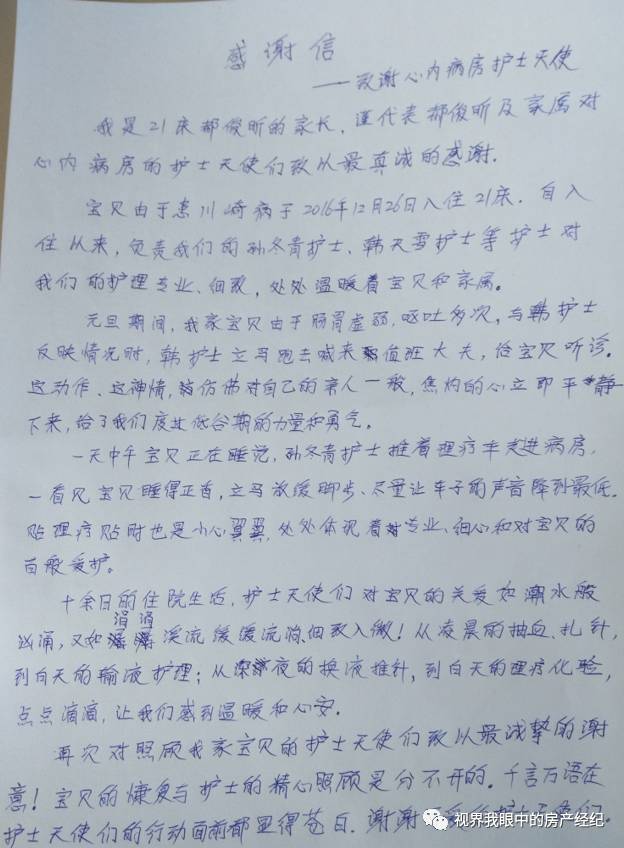 感谢信
——致谢心内病房护士天使
我是21床郝俊昕的家长，谨代表郝俊昕及家属对
心内病房的护士天使们致以最真诚的感谢.
宝贝由于患川崎病于2016年12月26日入住21床.自入
住从来，负责我们的孙冬青护士、韩天雪护士等护士对
我们的护理专业、细致，处处温暖着宝贝和家属。
元旦期间，我家宝贝由于肠胃虚弱，呕吐多次，与韩护士
反映情况时，韩护士立马跑去喊来值班大夫，给宝贝听诊。
这动作、这神情，仿佛对自己的亲人一般，焦灼的心立即平静
下来，给了我们度过低谷期的力量和勇气。
一天中午宝贝正在睡觉，孙冬青护士推着理疗车走进病房，
一看见宝贝睡得正香，立马放缓脚步、尽量让车子的声音降到最低.
贴理疗贴时也是小心翼翼，处处体现着专业、细心和对宝贝的
百般爱护。
十余日的住院生活，护士天使们对宝贝的关爱如潮水般
汹涌，又如涓涓溪流缓缓流淌，细致入微！从凌晨的抽血、扎针，
到白天的输液护理；从深夜的换液推针，到白天的理疗化验，
点点滴滴，让我们感到温暖和心安.
再次对照顾我家宝贝的护士天使们致以最诚挚的谢
意！宝贝的康复与护士的精心照顾是分不开的。千言万语在
护士天使们的行动面前都显得苍白.谢谢护士天使们.
视界我眼中的房产经纪